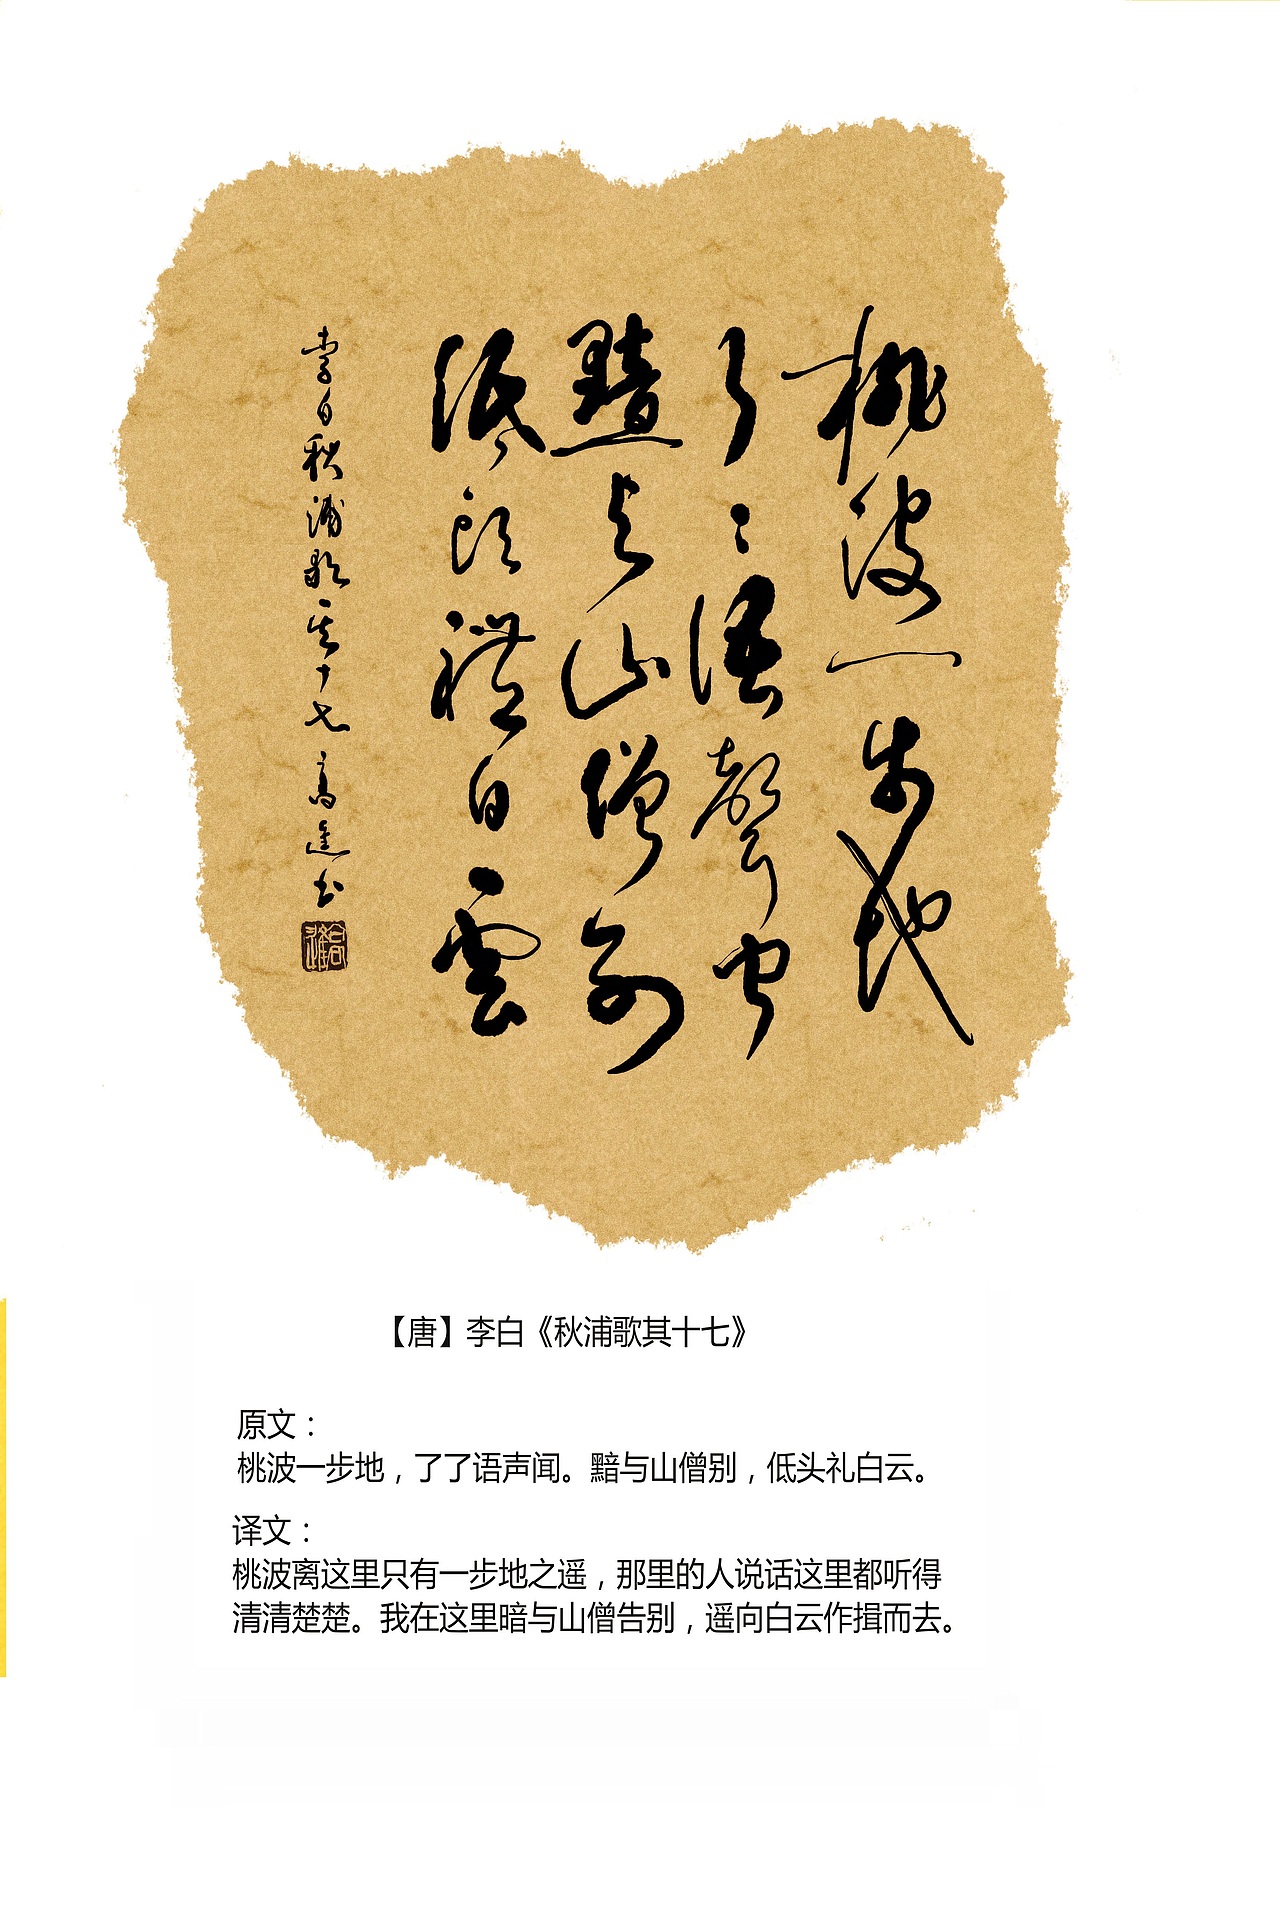 桃波一步地
了々語聲聞
黯与山僧別
低頭禮白雲
李白秋浦歌其十七高進书
【唐】李白《秋浦歌其十七》
原文：
桃波一步地，了了语声闻。黯与山僧别，低头礼白云。
译文：
桃波离这里只有一步地之遥，那里的人说话这里都听得
清清楚楚。我在这里暗与山僧告别，遥向白云作揖而去。